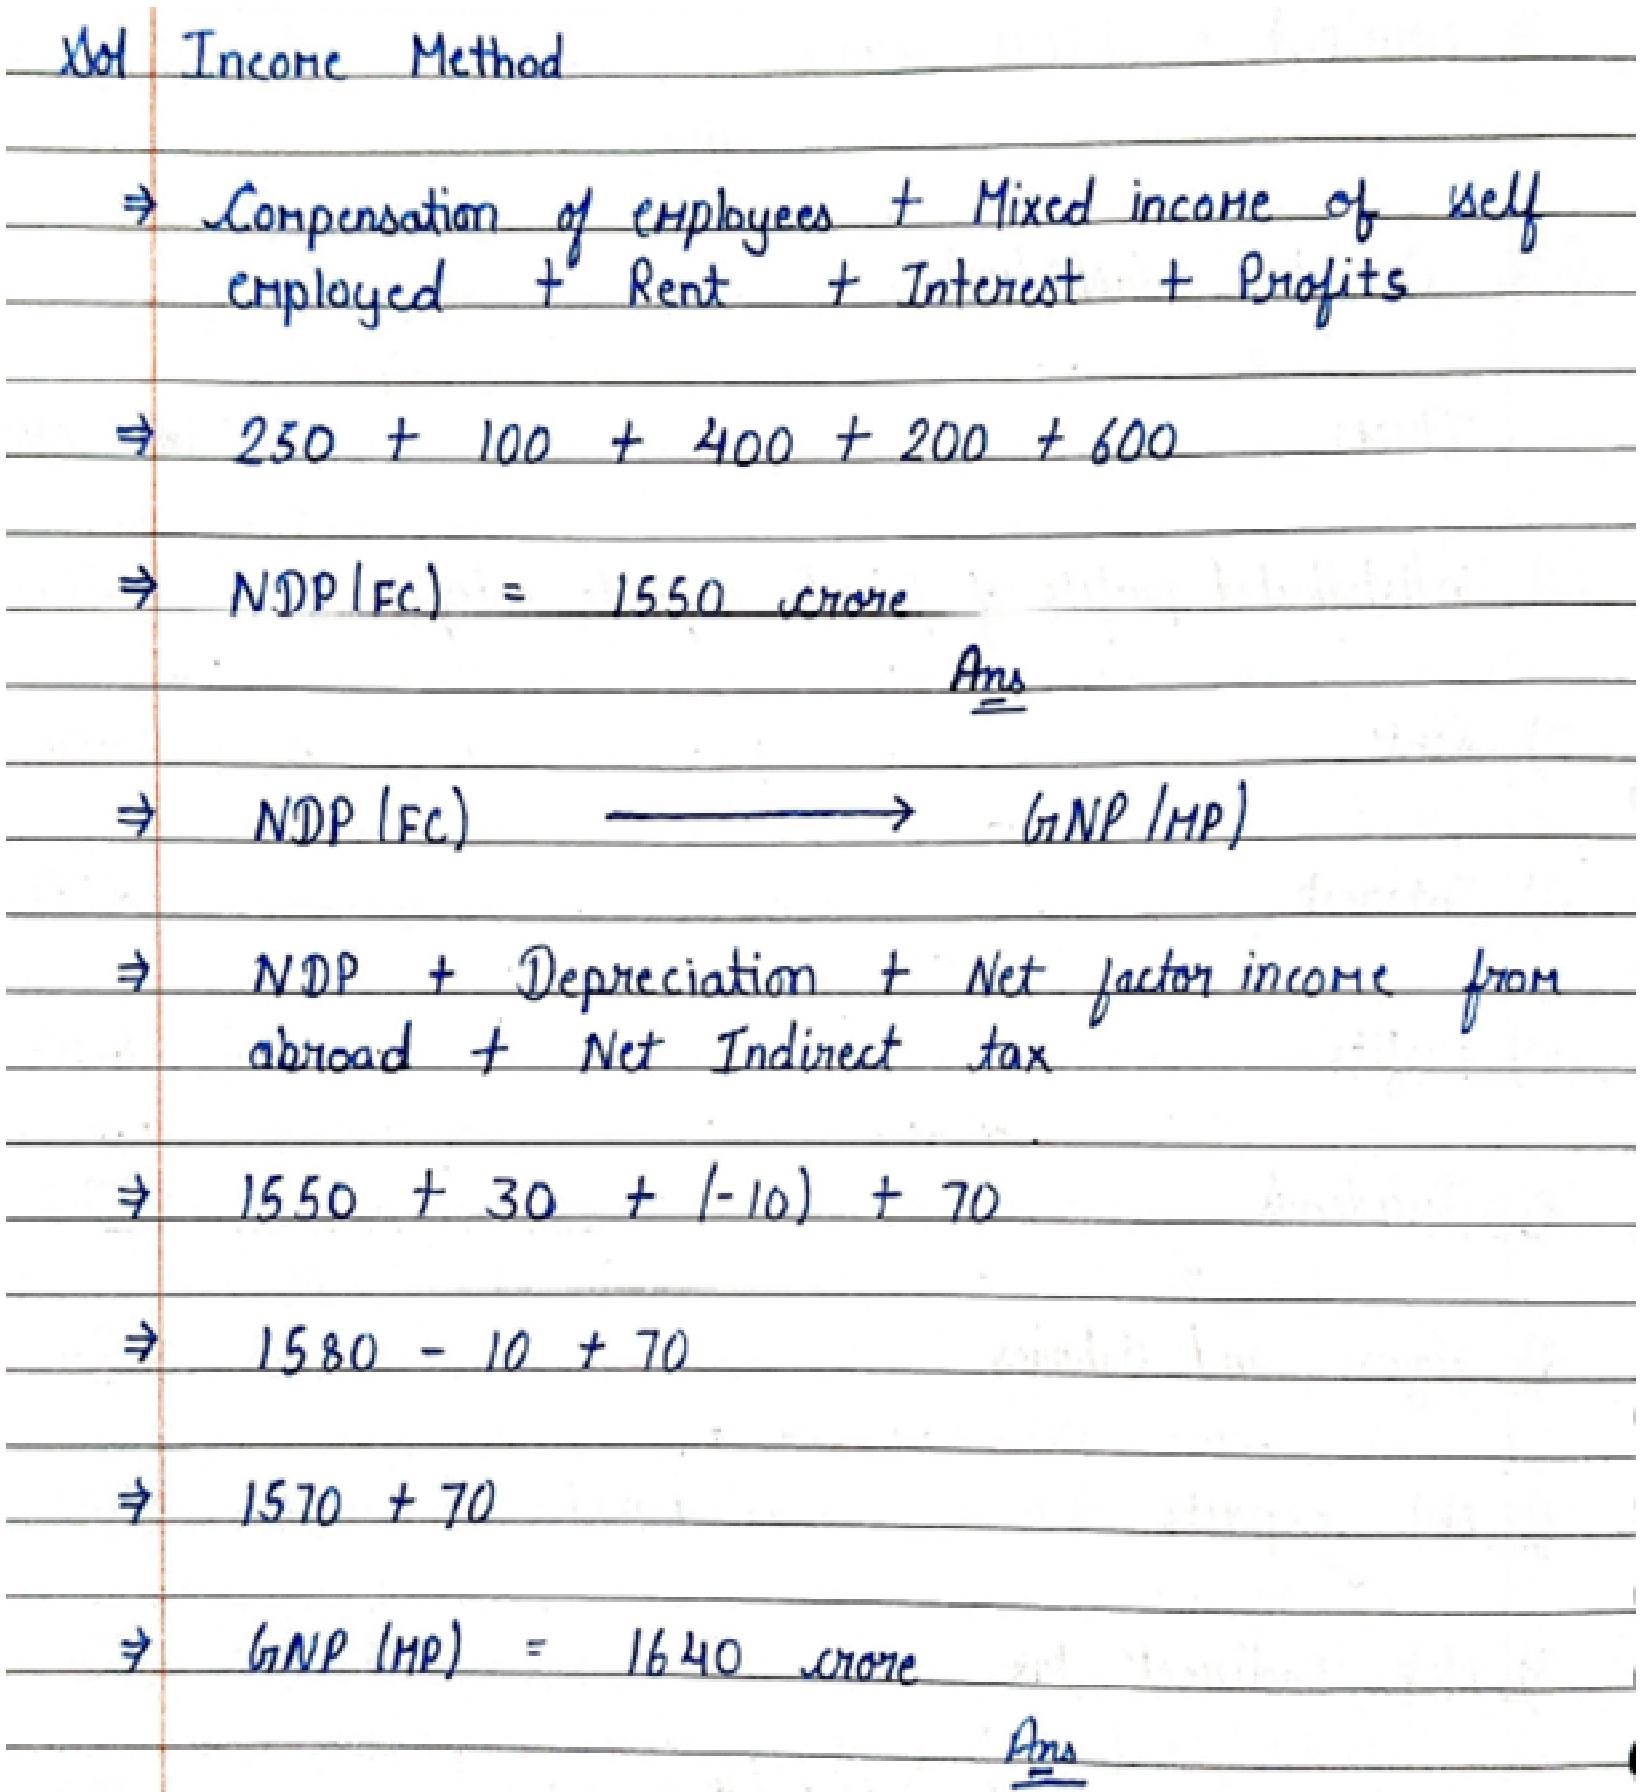 Sol Income Method
⇒ Compensation of employees + Mixed income of self
employed + Rent + Interest + Profits
⇒ 250 + 100 + 400 + 200 + 600
⇒ NDP(FC) = 1550 crore
Ans
⇒ NDP (FC) ⟶ GNP (MP)
⇒ NDP + Depreciation + Net factor income from
abroad + Net Indirect tax
⇒ 1550 + 30 + (-10) + 70
⇒ 1580 - 10 + 70
⇒ 1570 + 70
⇒ GNP (MP) = 1640 crore
Ans